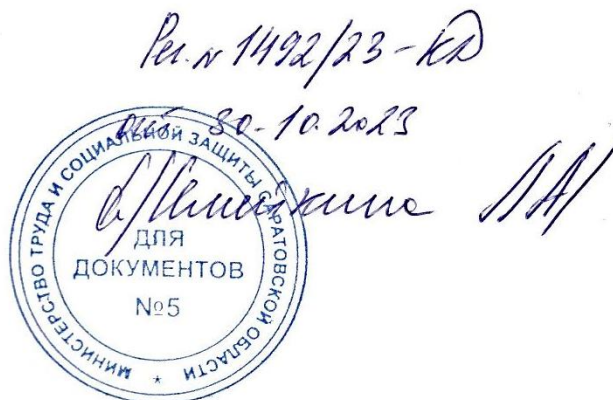 Рег. № 1492/23-КД
от 30.10.2023
Л.А.
МИНИСТЕРСТВО ТРУДА И СОЦИАЛЬНОЙ ЗАЩИТЫ САРАТОВСКОЙ ОБЛАСТИ *
ДЛЯ
ДОКУМЕНТОВ
№5